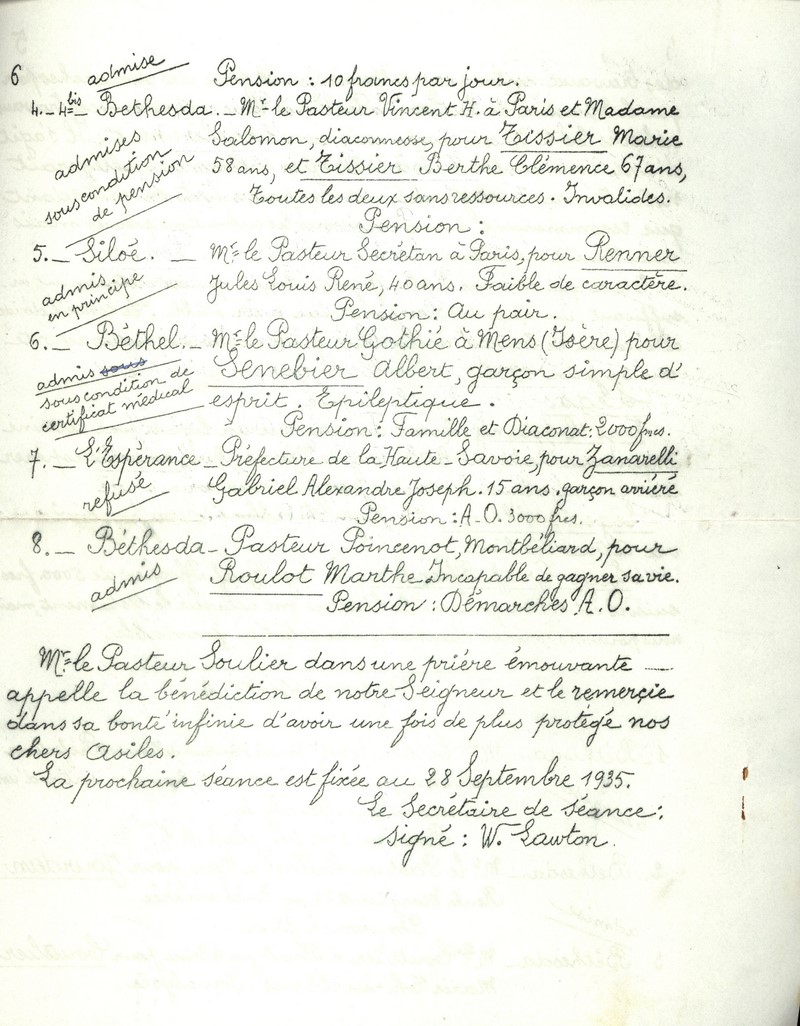 6
admise
Pension : 10 francs par jour.
4._ 4bis_ Bethesda._ Mr le Pasteur Vincent H. à Paris et Madame
admises
sous condition
de pension
Salomon, diaconnesse, pour Tissier Marie
58 ans, et Tissier Berthe Clémence 67 ans,
Toutes les deux sans ressources. Invalides.
Pension :
5._ Siloé. _ Mr le Pasteur Secrétan à Paris, pour Renner
admis
en principe
Jules Louis René, 40 ans. Faible de caractère.
Pension : Au pair.
6._ Béthel._ Mr le Pasteur Gothié à Mens (Isère) pour
admis sous
sous condition de
certificat médical
Senebier Albert, garçon simple d'
esprit. Epileptique.
Pension : Famille et Diaconat : 2000 frcs.
7._ L'Espérance_ Préfecture de la Haute-Savoie, pour Zanarelli
refusé
Gabriel Alexandre Joseph. 15 ans. garçon arriéré
Pension : A.O. 3000 frcs.
8._ Béthesda_ Pasteur Poincenot, Montbéliard, pour
admis
Roulot Marthe. Incapable de gagner sa vie.
Pension : Démarches A.O.
Mr le Pasteur Soulier dans une prière émouvante _
appelle la bénédiction de notre Seigneur et le remerçie
dans sa bonté infinie d'avoir une fois de plus protégé nos
chers Asiles.
La prochaine séance est fixée au 28 Septembre 1935.
Le Secrétaire de séance :
signé : W. Lawton.